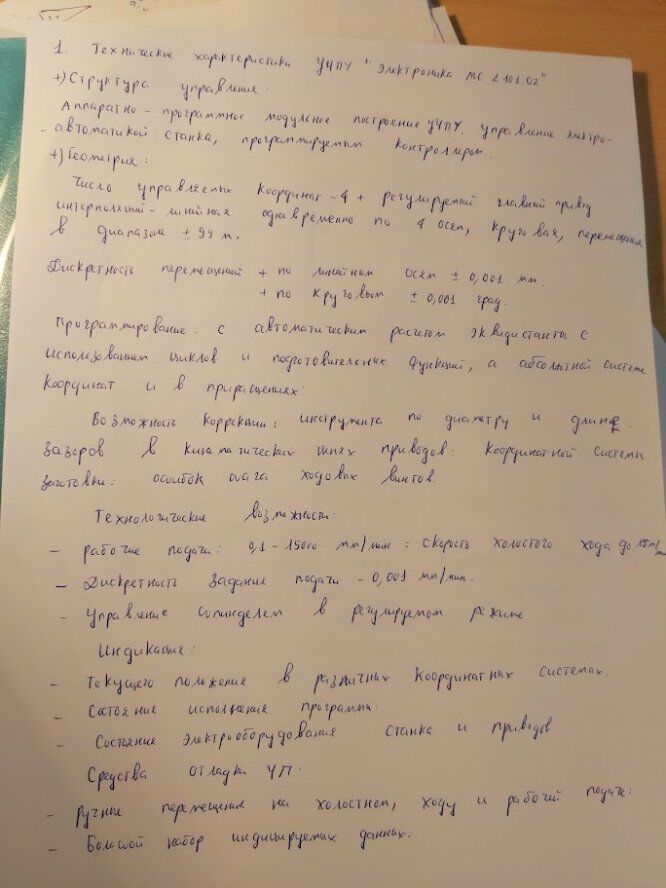 1. Технические характеристики УЧПУ "Электроника МС 2101.02"
+) Структура управления:
Аппаратно-программное модульное построение УЧПУ. Управление электро-
- автоматикой станка, программируемым контроллером.
+) Геометрия:
Число управляемых координат - 4 + регулируемый главный привод
интерполяций - линейная одновременно по 4 осям, круговая, перемещения
в диапазоне ± 99 м.
Дискретность перемещений + по линейным осям ± 0,001 мм.
+ по круговым ± 0,001 град.
Программирование: с автоматическим расчетом эквидистанты с
использованием циклов и подготовительных функций, а абсолютной системе
координат и в приращениях:
Возможность коррекции: инструмента по диаметру и длине
зазоров в кинематических цепях приводов: координатной системы
заготовки: ошибок шага ходовых винтов.
Технологические возможности:
- рабочие подачи: 0,1 - 15000 мм/мин: скорость холостого хода до 15 м/мин
- Дискретность задания подачи - 0,001 мм/мин.
- Управление шпинделем в регулируемом режиме
Индикация:
- Текущего положения в различных координатных системах.
- Состояния исполнения программы:
- Состояние электрооборудования станка и приводов
Средства отладки УП.
- Ручные перемещение на холостном, ходу и рабочей подаче:
- Большой набор индицируемых данных.